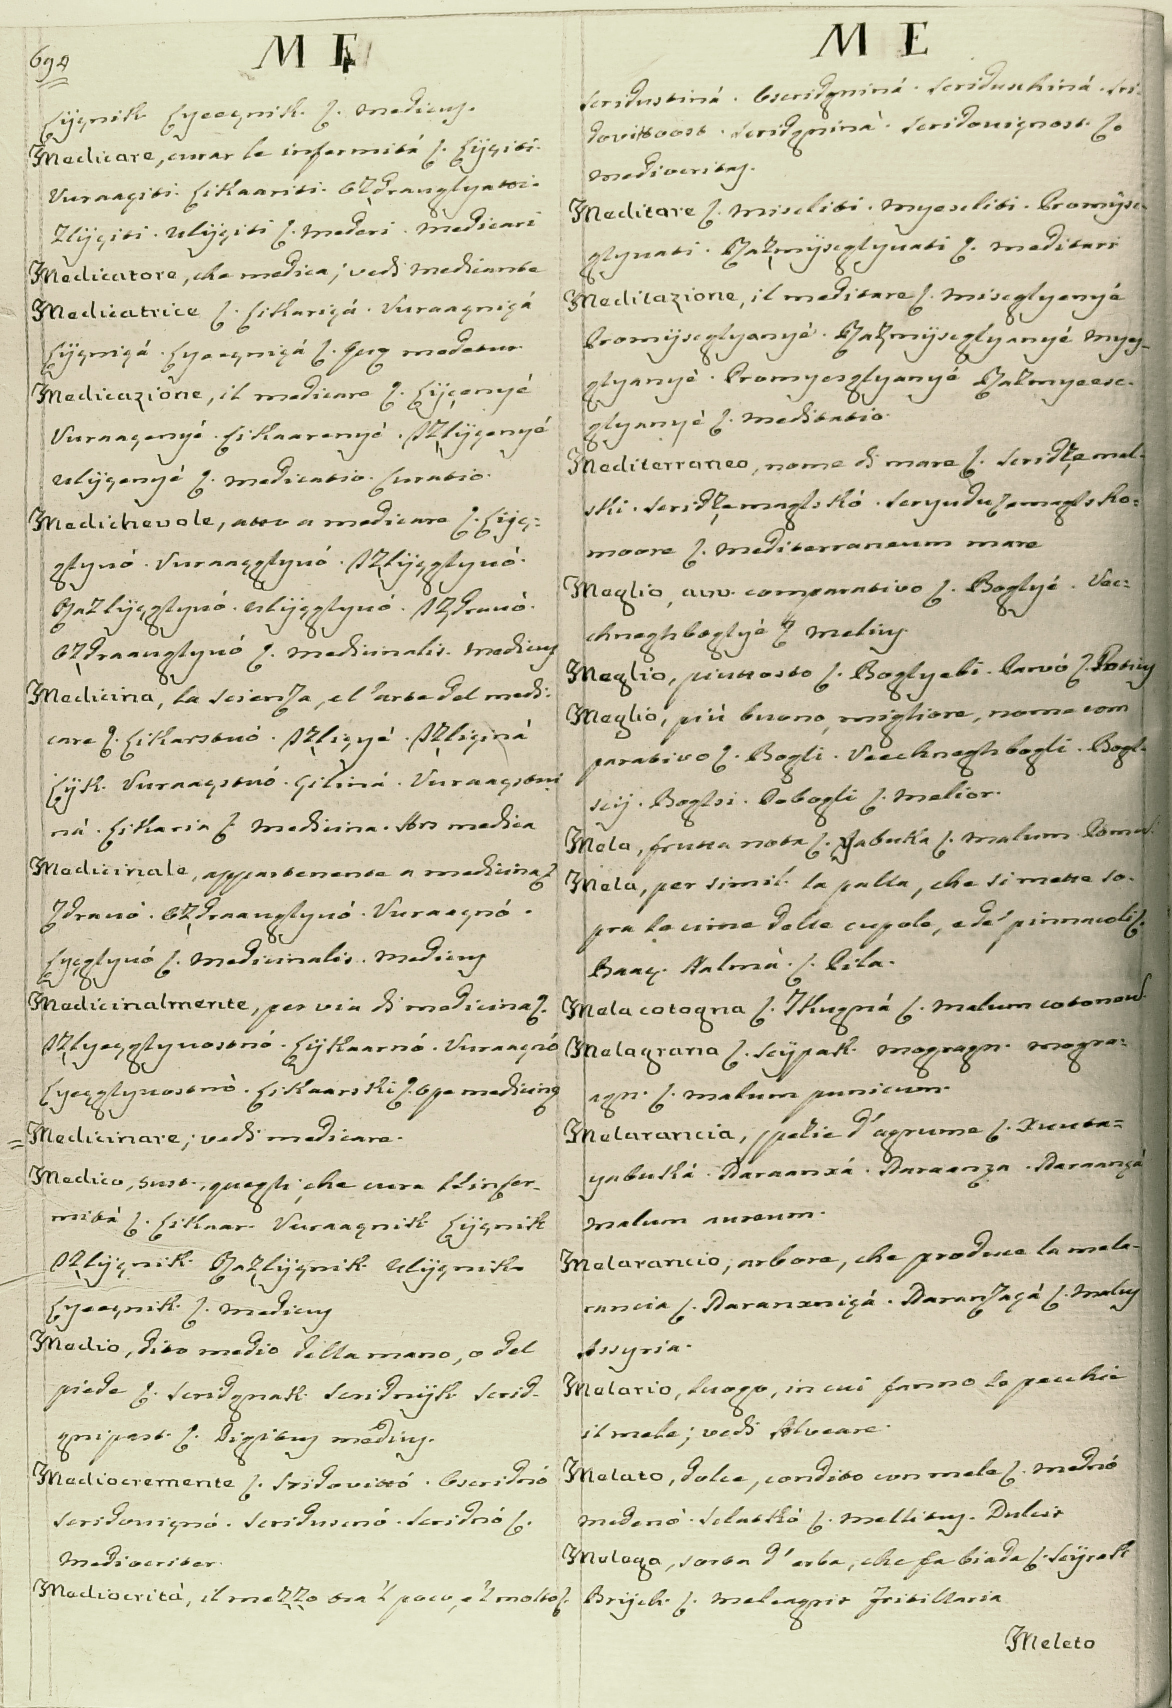 694
M E
Liječnik. Lyeecnik. L. medicus.
Medicare, curar le infermità L. Lijçiti.
Vuraaçiti. Likaariti. Ozdrauglyatti.
Zlijçiti. Ulijçiti L. Mederi. medicari
Medicatore, che medica; vedi medicante
Medicatrice L. Likariçá. Vuraaçniçá
Lijçniçá. Lyeeçniçá L. Quæ medetur.
Medicazione, il medicare L. Lijçenyé
Vuraaçenyé. Likaarenyé. Izlijçenyé
Ulijçenyé L. medicatio. Curatio.
Medichevole, atto a medicare L. Lijç=
glyvó. Vuraaçglyvó. Izlijçglyvó.
Razlijçglyvó. Ulijçglyvó. Izdravó.
Ozdraauglyvó L. medicinalis. medicus
Medicina, la scienza, e l'arte del medi-
care L. Likarstvó. Izliçyé. Izliçiná
Lijk. Vuraaçstvó. Çiliná. Vuraaçstvi
ná. Likaria L. medicina. Ars medica
Medicinale, appartenente a medicina L.
Zdravó. Ozdraauglyvó. Vuraaçnó.
Lyeçglyvó L. medicinalis. medicus
Medicinalmente, per via di medicina L.
Izlyeçglyvostnó. Lijkaarnó. Vuraaçnó
Lyeçglyvostnó. Likaarski L. Ope medicinæ
= Medicinare; vedi medicare.
Medico, sust., quegli, che cura l'infer-
mità L. Likaar. Vuraaçnik Lijçnik
Izlijçnik. Razlijçnik Ulijçnik.
Lyeeçnik. L. medicus
Medio, dito medio della mano, o del
piede L. Sridgnak. Sridnijk Srid-
gniparst. L. Digitus medius.
Mediocremente L. Sridovittó. Osridnó
Sridoviçnó. Sridusnó. Sridnó L.
mediocriter.
Mediocrità, il mezzo tra 'l poco, e 'l molto L.
M E
dovittost. Sridgniná. Sridoviçnost. L.
mediocritas.
Meditare L. misliti. myesliti. Promijs-
glyvati. Razmijsglyvati L. meditari
Meditazione, il meditare L. misglyenyé
Promijsglyanyé. Razmijsglyanyé Myes-
glyanyé. Promyesglyanyé Razmyees-
glyanyé L. meditatio.
Mediterraneo, nome di mare L.
moore L. mediterraneum mare
Meglio, avv. comparativo L. Boglyé. Vec=
chneghboglyé L. melius.
Meglio, piuttosto L. Boglyebi. Parvó L. Potius
Meglio, più buono, migliore, nome com
parativo L. Bogli. Veechneghbogli. Bogl-
scij. Boglsi. Pobogli L. melior.
Mela, frutta nota L. Jabuka L. malum. Pomum
Mela, per simil. la palla, che si mette so-
pra le cime delle cupole, e de' pinnacoli L.
Baaç. Halmá. L. Pila.
Mela cotogna L. Tkugná L. malum cotoneum
Melagrana L. Scijpak. mogragn. mogra=
agn. L. malum punicum.
Melarancia, spezie d'agrume L. Xuuta=
yabuká. Daraanxá. Daraanza. Daraançá
malum aureum.
Melarancio, arbore, che produce la mela-
rancia L. Daranxniçá. Daranzaçá L. malus
Assyria.
Melario, luogo, in cui fanno le pecchie
il mele; vedi Alveare.
Melato, dolce, condito con mele L. mednó
medenó. Slatkó L. mellitus. Dulcis
Melega, sorta d'erba, che fa biada L. Scijrak
Brijck. L. meleagris Fritillaria
Meleto